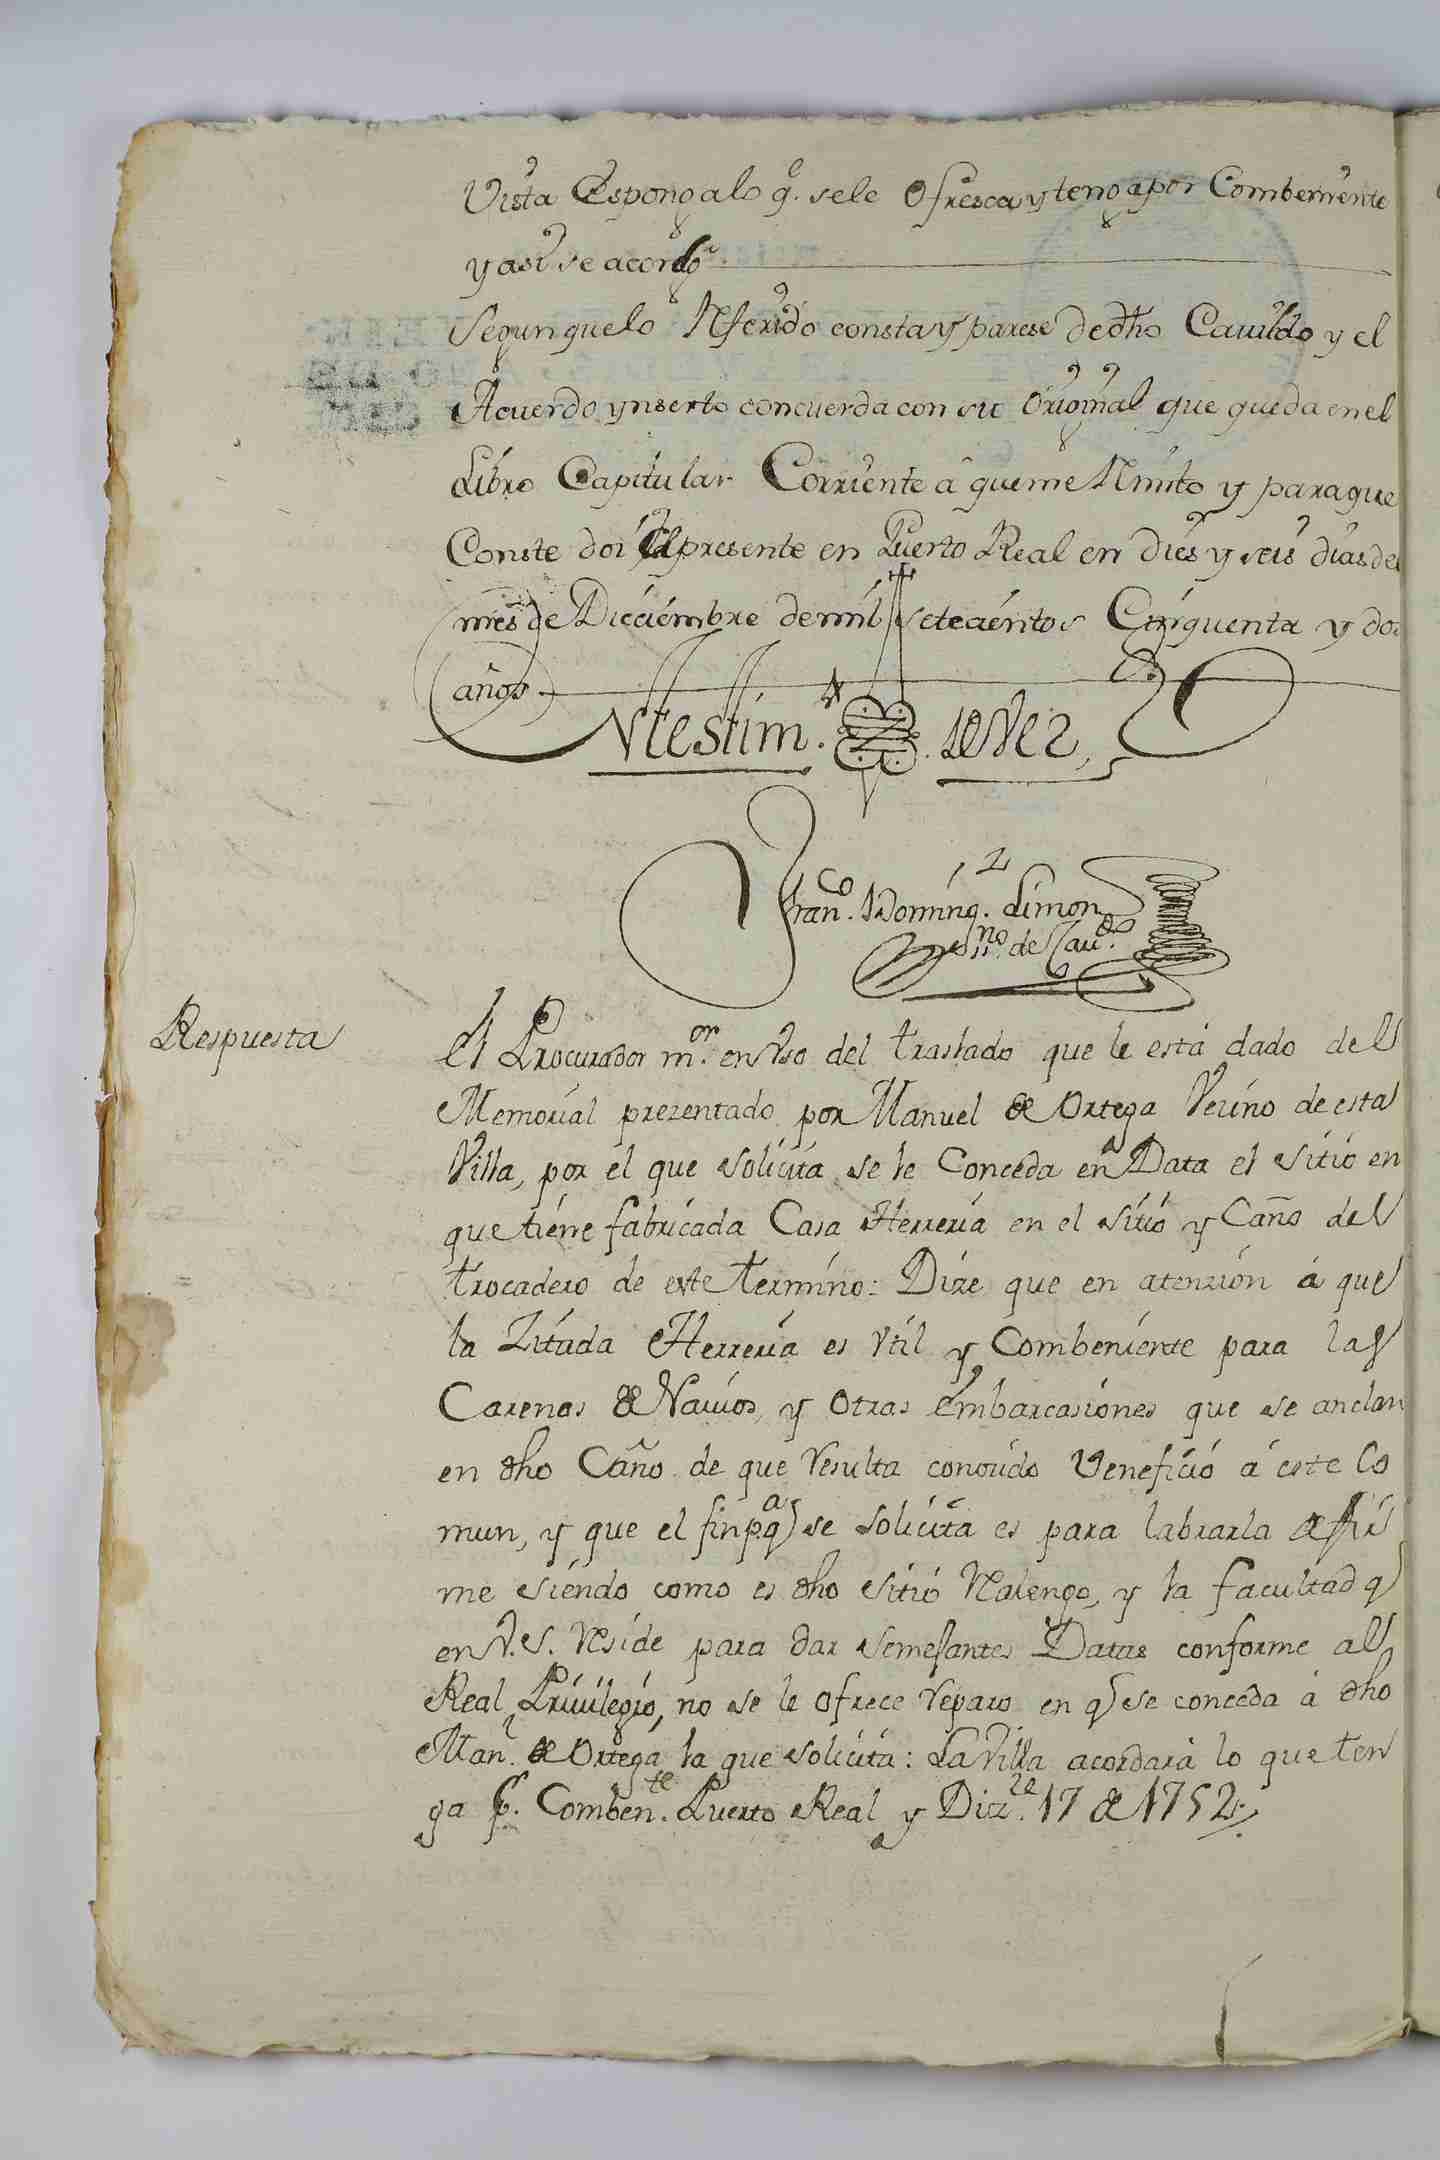 Vista Esponga lo q. sele Ofresca y tenga por Combeniente
y asi se acordo
Segun que lo Referido consta y parese de dho Cavildo y el
Acuerdo ynserto concuerda con su Original que queda en el
Libro Capitular Corriente â que me Remito y para que
Conste doi el presente en Puerto Real en dies y seis dias del
mes de Diciembre de mil setecientos Cinquenta y dos
años
Fran.co Doming.z Limon
ss.no de Cav.do
Respuesta
El Procurador m.or en Vso del traslado que le está dado del
Memorial prezentado por Manuel de Ortega Vecino de esta
Villa, por el que solicita se le Conceda en Data el sitio en
que tiene fabricada Casa Herreria en el sitio y Caño del
trocadero de este termino: Dize que en atenzion á que
la Zitada Herreria es Vtil y Combeniente para las
Carenas de Navios, y otras Embarcasiones que se anclan
en dho Caño de que resulta conosido Veneficio á este Co
mun, y que el fin p.a q se solicita es para labrarla de fir
me siendo como es dho sitio Realengo, y la facultad q
en V.S. Reside para dar semejantes Datas conforme al
Real Privilegio, no se le ofrece reparo en q se conceda á dho
Man.l de Ortega la que solicita: La Villa acordará lo que ten
ga p.r Comben.te Puerto Real y Diz.re 17 de 1752.